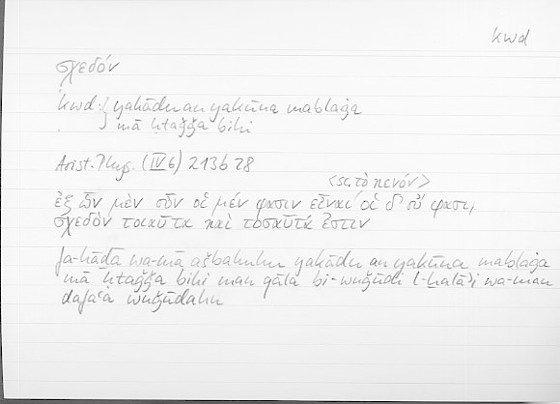 kwd
σχεδόν
kwd: } yakādu an yakūna mablaġa
. } mā ḥtaǧǧa bihi
Arist. Phys. (IV 6) 213b28
<sc. τὸ κενόν>
ἐξ ὧν μὲν οὖν οἱ μέν φασιν εἶναι οἱ δ' οὔ φασι,
σχεδὸν τοιαῦτα καὶ τοσαῦτά ἐστιν
fa-hāḏā wa-mā ašbahuhu yakādu an yakūna mablaġa
mā ḥtaǧǧa bihi man qāla bi-wuǧūdi l-ḫalāʾi wa-man
dafaʿa wuǧūdahu